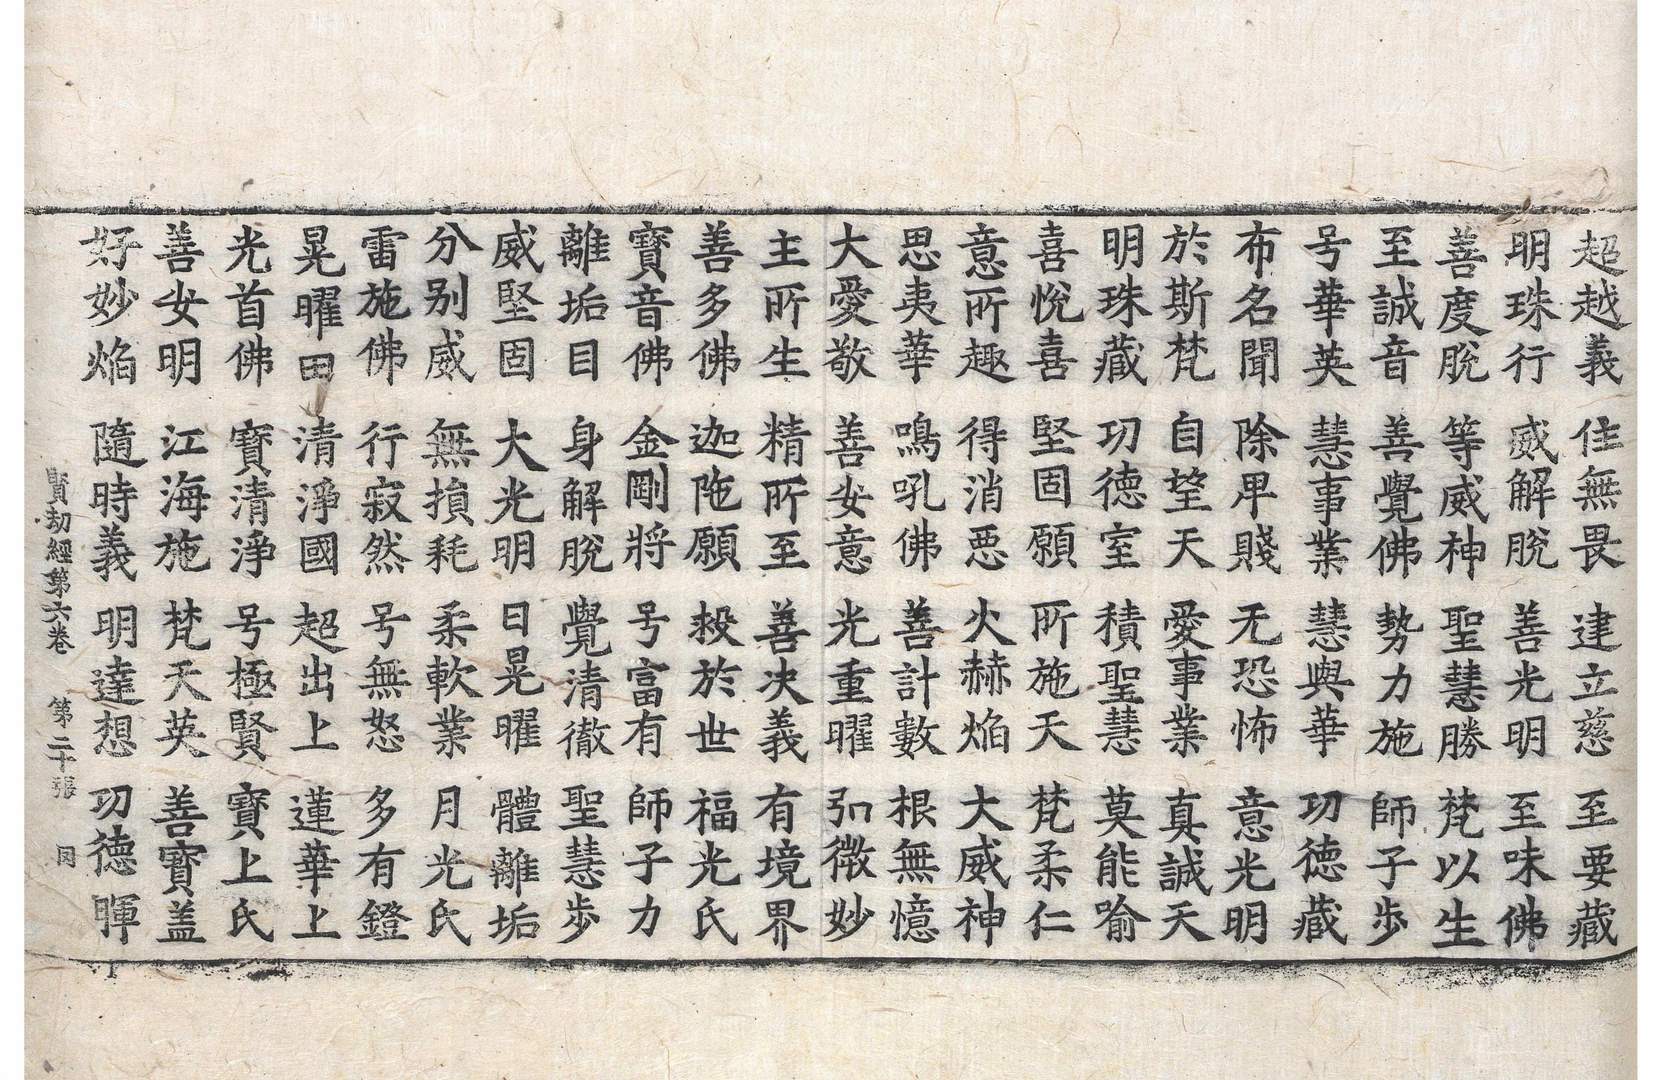 超越義 住無畏 建立慈 至要藏
明珠行 威解脫 善光明 至味佛
善度脫 等威神 聖慧勝 梵以生
至誠音 善覺佛 勢力施 師子步
号華英 慧事業 慧與華 功德藏
布名聞 除卑賤 无恐怖 意光明
於斯梵 自望天 愛事業 真誠天
明珠藏 功德室 積聖慧 莫能喻
喜悅喜 堅固願 所施天 梵柔仁
意所趣 得消惡 火赫焔 大威神
思夷華 鳴吼佛 善計數 根無憶
大愛敬 善女意 光重曜 弘微妙
主所生 精所至 善决義 有境界
善多佛 迦陁願 殺於世 福光氏
寳音佛 金剛將 号富有 師子力
離垢目 身解脫 覺清徹 聖慧步
威堅固 大光明 日晃曜 體離垢
分别威 無損耗 柔軟業 月光氏
雷施佛 行寂然 号無怒 多有鐙
晃曜田 清淨國 超出上 蓮華上
光首佛 寳清淨 号極賢 寳上氏
善女明 江海施 梵天英 善寳盖
好妙焔 隨時義 明達想 功德暉
賢劫經第六卷 第二十張 罔